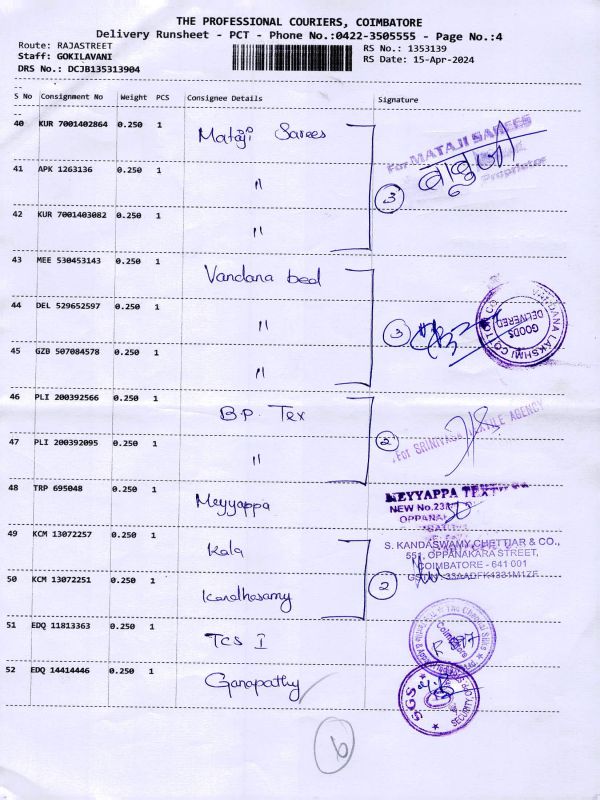 THE PROFESSIONAL COURIERS, COIMBATORE
Delivery Runsheet - PCT - Phone No.:0422-3505555 - Page No.:4
Route: RAJASTREET
RS No.: 1353139
Staff: GOKILAVANI
RS Date: 15-Apr-2024
DRS No.: DCJB135313904
S No Consignment No Weight PCS Consignee Details Signature
40 KUR 7001402864 0.250 1 Mataji Sarees
For MATAJI SAREES
Proprietor
41 APK 1263136 0.250 1 "
3
42 KUR 7001403082 0.250 1 "
43 MEE 530453143 0.250 1 Vandana bed
44 DEL 529652597 0.250 1 "
3
GOODS DELIVERED
LAKSHMI COTTON CO
45 GZB 507084578 0.250 1 "
46 PLI 200392566 0.250 1 B.P. Tex
2
For SRINIVASA TEXTILE AGENCY
47 PLI 200392095 0.250 1 "
48 TRP 695048 0.250 1 Meyyappa
MEYYAPPA
NEW No.23
49 KCM 13072257 0.250 1 Kala
S. KANDASWAMY CHETTIAR & CO.,
551, OPPANAKARA STREET,
COIMBATORE - 641 001
50 KCM 13072251 0.250 1 Kandhasamy
2
51 EDQ 11813363 0.250 1 TCS I
The Chennai Silks
Coimbatore
52 EDQ 14414446 0.250 1 Ganapathy
SGS
SECURITY
6